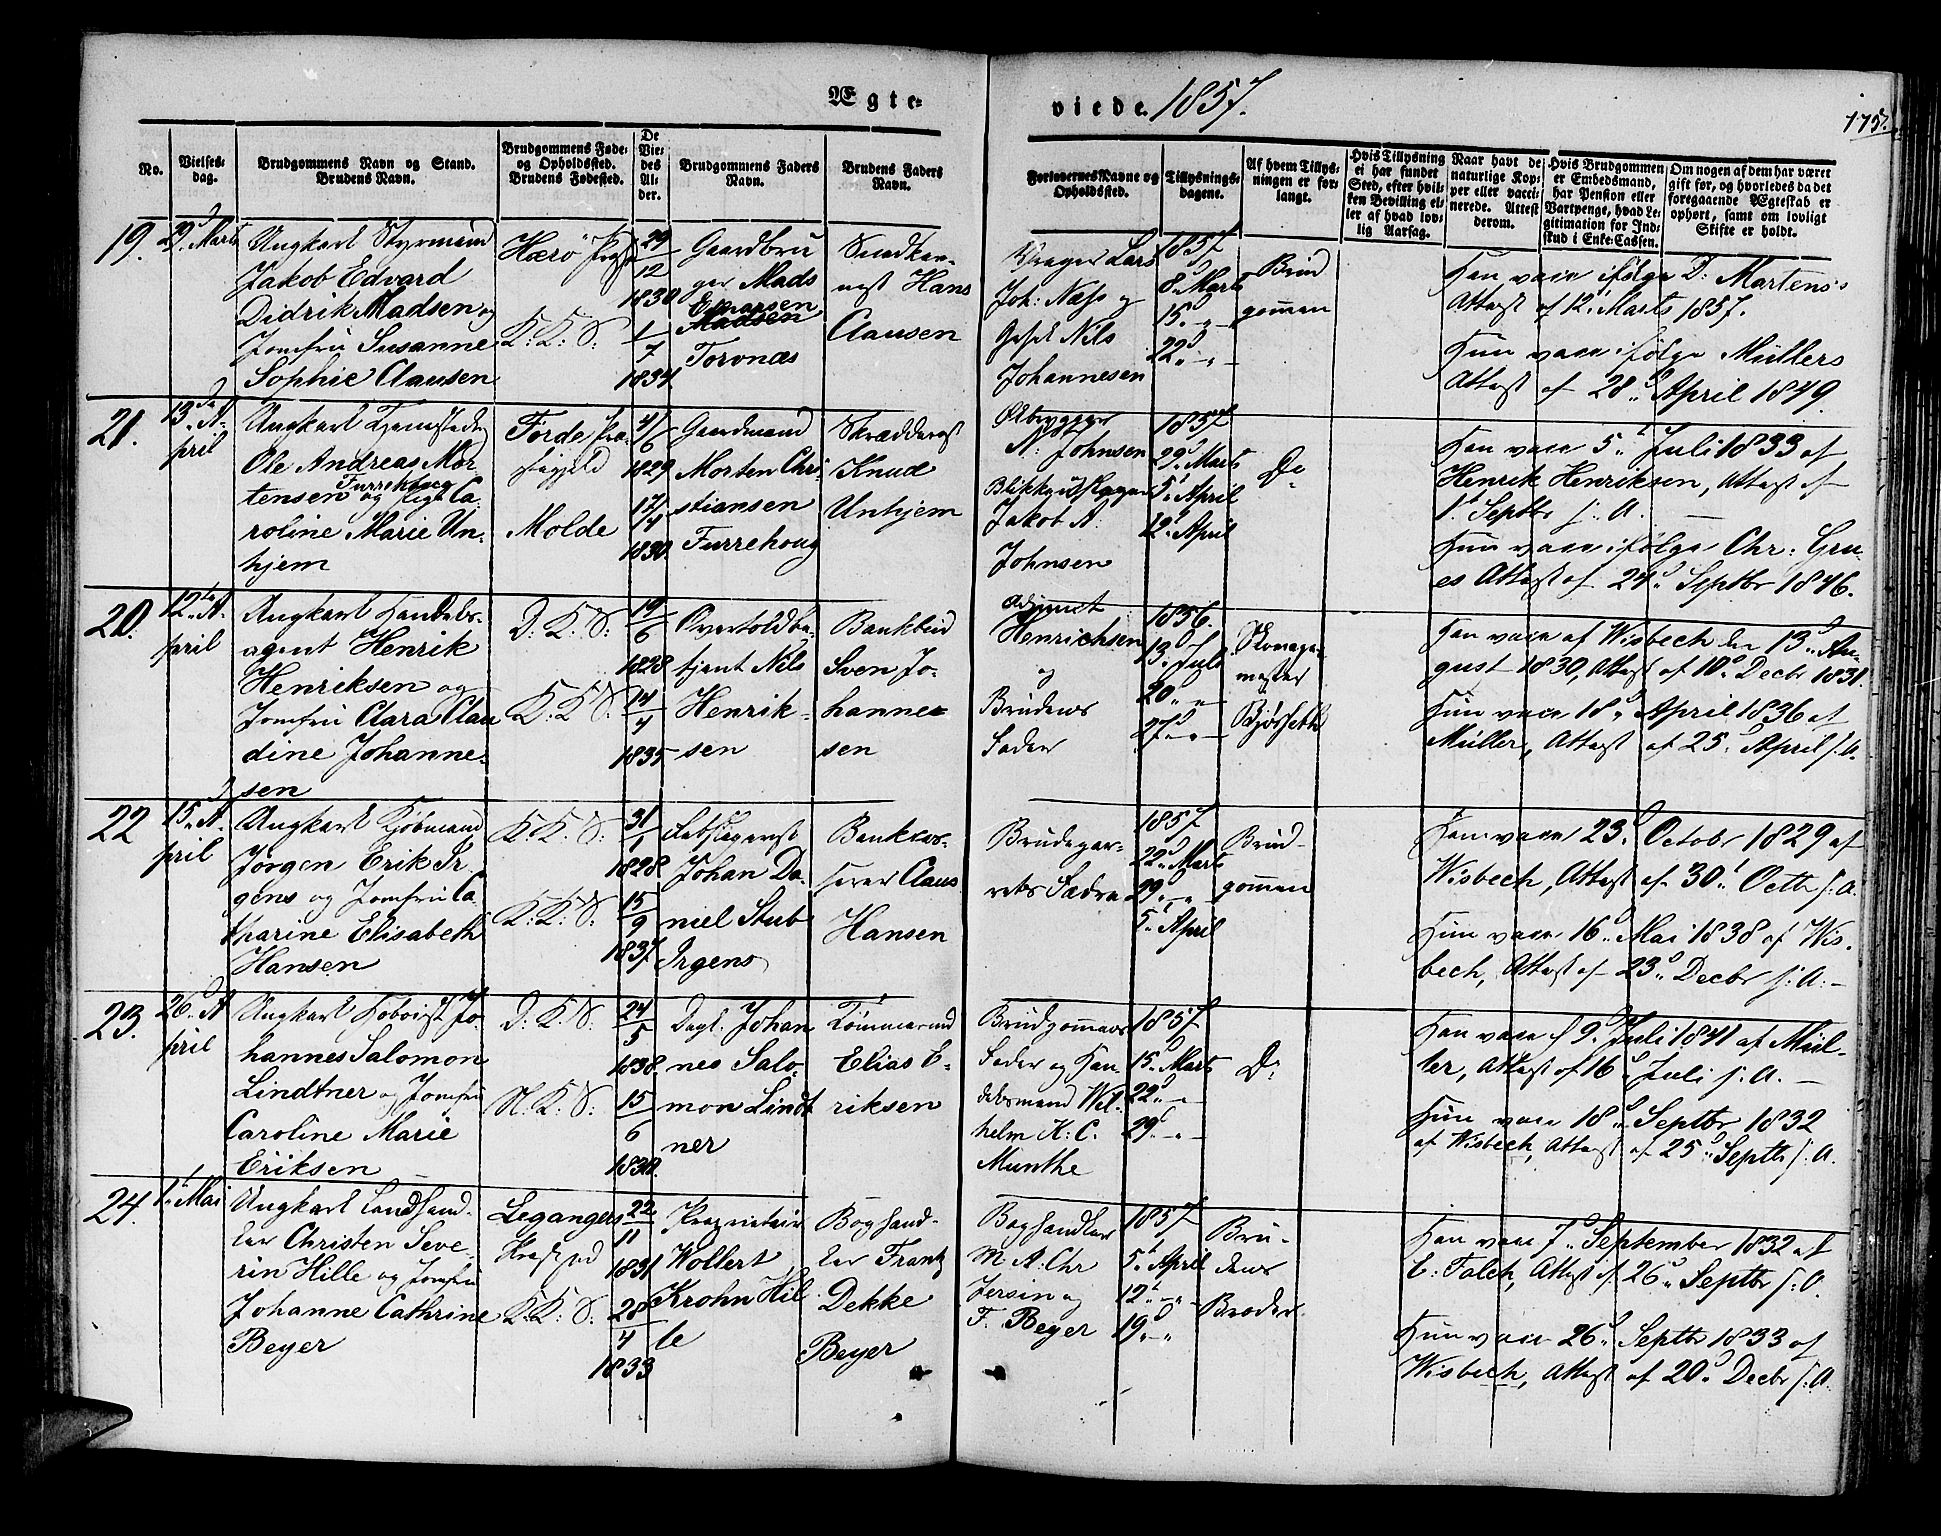 Ægte-
viede 1857.
175.
No.
Vielses-
dag.
Brudgommens Navn og Stand.
Brudens Navn.
Brudgommens Føde-
og Opholdssted.
Brudens Fødested.
De
Vie-
des
Al-
der.
Brudgommens Faders
Navn.
Brudens Faders
Navn.
Forlovernes Navne og
Opholdssted.
Tillysnings-
dagene.
Af hvem Tillys-
ningen er for-
langt.
Hvis Tillysning
ei har fundet
Sted, efter hvil-
ken Bevilling el-
ler af hvad lov-
lig Aarsag.
Naar havt de
naturlige Kop-
per eller vacci-
nerede. Attest
derom.
Hvis Brudgommen
er Embedsmand,
har Pension eller
Vartpenge, hvad Le-
gitimation for Ind-
skud i Enke-Cassen.
Om nogen af dem har været
gift før, og hvorledes da det
foregaaende Ægteskab er
ophørt, samt om lovligt
Skifte er holdt.
19.
29d Marts
Ungkarl Styrmand
Jakob Edvard
Didrik Madsen og
Jomfru Susanne
Sophie Clausen
Hærö Prgj
K: K: S:
29
12
1830
1
7
1834
Gaardbru
ger Mads
Enoksen
Madsen
Torvnæs
Hans
Clausen
Lars
Joh: Næss og
Nils
Johannesen
1857
8d Marts
15d "
22d "
Brud
gommen
Han vacc ifølge D: Martens's
Attest af 12t Marts 1857.
Hun vacc ifølge Müllers
Attest af 28d April 1849.
21.
13de A-
pril
Ungkarl
Ole Andreas Mor-
tensen Furrehoug
og Pige Ca-
roline Marie Un-
hjem
Førde Præ-
stegjeld
Molde
4/
6
1829
17/
4
1830
Gaardmand
Morten Chri-
stiansen
Furrehoug
Skrædderst
Knud
Unhjem
N: Johnsen
Jakob A:
Johnsen
1857
29d Marts
5t April
12t April
Do
Han vacc 5t Juli 1833 af
Henrik Henriksen, Attest af
1t Septbr s: A. —
Hun vacc ifølge Chr: Gru-
es Attest af 24d Septbr 1846.
20.
12te A-
pril
Ungkarl Handels-
agent Henrik
Henriksen og
Jomfru Clara Clau
dine Johanne-
sen
D: K: S:
K: K: S:
19
6
1828
14
4
1835
Overtoldbe-
tjent Nils
Henrik-
sen
Bankbud
Sven Jo-
hanne-
sen
Adjunct
Henrichsen
og
Brudens
Fader
1856.
13d Juli
20d "
27d "
Skomager
mester
Han vacc af Wisbech den 13d Au-
gust 1830, Attest af 10d Decbr 1831.
Hun vacc 18d April 1836 af
Müller, Attest af 25d April s: A.
22
15d A-
pril
Ungkarl Kjöbmand
Jørgen Erik Ir-
gens og Jomfru Ca-
tharine Elisabeth
Hansen
K: K: S:
K: K: S:
31
1
1828
15
9
1837
Johan Da-
niel Stub
Irgens
Bankcas-
serer Claus
Hansen
Brudepar-
rets Fædre
1857
22d Marts
29d "
5t April
Brud-
gommen
Han vacc 23d Octobr 1829 af
Wisbech, Attest af 30t Octb s: A.
Hun vacc 16d Mai 1838 af Wis-
bech, Attest af 23d Decbr s: A: —
23.
26d A
pril
Ungkarl Hoboist Jo-
hannes Salomon
Lindtner og Jomfru
Caroline Marie
Eriksen
D: K: S:
N: K: S:
24
5
1838.
15
6
1830.
Dagl: Johan
nes Salo-
mon Lindt
ner
Tömmermd
Elias E-
riksen
Brudgommens
Fader og Han
delsmand Wil-
helm K: C.
Munthe
1857
15d Marts
22d "
29d "
Do
Han vacc d 9d Juli 1841 af Mül-
ler, Attest af 16d Juli s: A. —
Hun vacc 18d Septbr 1832
af Wisbech, Attest af 25d Septb s: A.
24.
1t Mai
Ungkarl Landhand-
ler Christen Seve-
rin Hille og Jomfru
Johanne Cathrine
Beyer
Leganger
Præstgd
K: K: S:
22
11
1831
28
4
1833
Proprietair
Wollert
Krohn Hil
le
Boghand-
ler Frantz
Dekke
Beyer
Boghandler
M: A: Chr
Jersin og
F. Beyer
1857
5t April
12t "
19d "
Bru-
dens
Broder
Han vacc 7d September 1832 af
E: Falch, Attest af 26d Septbr s: A.
Hun vacc 26d Septbr 1833 af
Wisbech, Attest af 20d Decbr s: A.